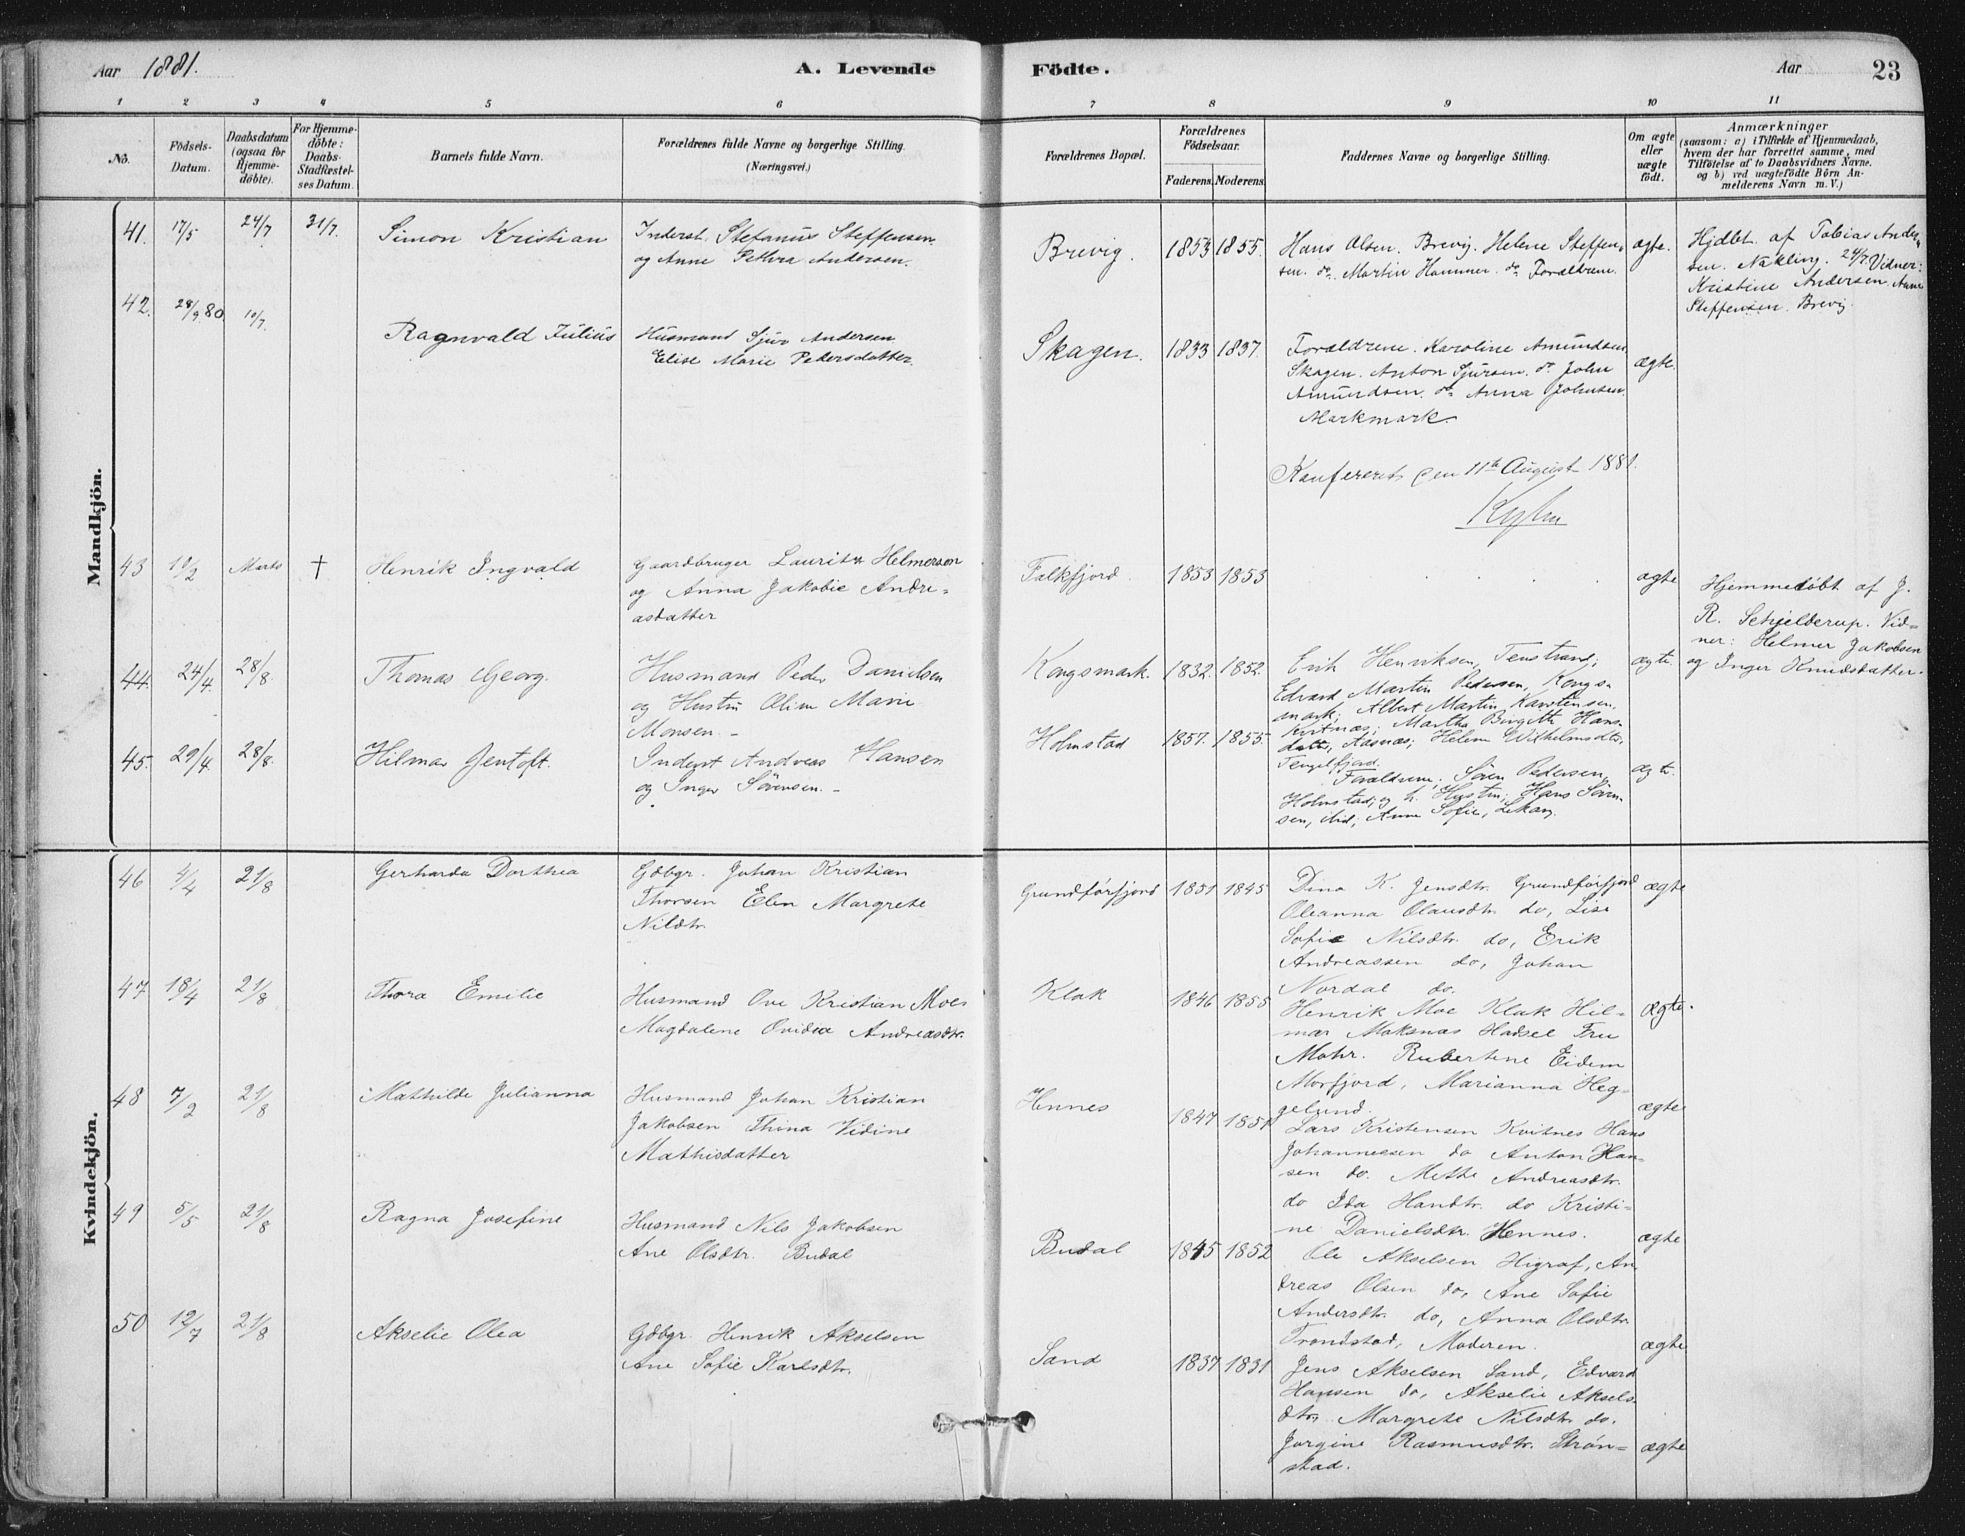 Aar 1881.
A. Levende Födte.
Aar
23
1 2 3 4 5 6 7 8 9 10 11
No.
Födsels-Datum.
Daabsdatum (ogsaa for Hjemmedöbte).
For Hjemmedöbte: Daabs-Stadfæstelses Datum.
Barnets fulde Navn.
Forældrenes fulde Navne og borgerlige Stilling. (Næringsvei.)
Forældrenes Bopæl.
Forældrenes Födselsaar.
Faderens. Moderens.
Faddernes Navne og borgerlige Stilling.
Om ægte eller uægte födt.
Anmærkninger
(saasom: a) i Tilfælde af Hjemmedaab,
hvem der har forrettet samme, med
Tilföielse af to Daabsvidners Navne.
og b) ved uægtefödte Börn An-
melderens Navn m. V.)
Mandkjön.
41. 17/5 24/7 31/7. Simon Kristian
Inderst. Stefanus Steffensen
og Anne Petra Andersen.
Brevig. 1853 1855.
Hans Olsen. Brevig. Helene Steffen-
sen. do. Martin Hammer. do. Forældrene.
ægte.
Hjdbt. af Tobias Ander-
sen. Nakling. 24/7. Vidner:
Kristine Andersen. Anne
Steffensen. Brevig.
42. 28/9 80 10/7. Ragnvald Julius
Husmand Sjur Andersen
Elise Marie Pedersdatter.
Skagen. 1833 1837.
Forældrene. Karoline Amundsen
Skagen. Anton Sjursen. do John
Amundsen. do. Anna Johnsen.
Markmark.
ægte.
Konfereret den 11te August 1881.
43 10/2 Marts † Henrik Ingvald
Gaardbruger Lauritz Helmersen
og Anna Jakobie Andre-
asdatter
Falkfjord. 1853 1853
ægte
Hjemmedöbt af J.
R. Schjelderup. Vid-
ner: Helmer Jakobsen
og Inger Knudsdatter.
44. 24/4. 28/8. Thomas Georg.
Husmand Peder Danielsen
og Hustru Oline Marie
Monsen. -
Kongsmark. 1832. 1852.
Erik Henriksen, Tenstrand;
Edvard Martin Pedersen, Kongs-
mark; Albert Martin Karstensen
Kvitnæs; Martha Birgitte Hans-
datter, Aasnæs; Helene Wilhelmsdtr.
Tengelfjord.
ægte.
45. 29/4. 28/8. Hilmar Jentoft.
Inderst Andreas Hansen
og Inger Sörensen. -
Holmstad 1857. 1855.
Forældrene. Sören Pedersen
Holmstad; og h. Hustru; Hans Sören-
sen, ibid; Anne Sofie, Lekang.
ægte.
Kvindekjön.
46 4/4 21/8 Gerharda Dorthea
Gdbgr. Johan Kristian
Thorsen Elen Margrete
Nilsdtr.
Grundförfjord 1851 1845
Dina K. Jensdtr. Grundförfjord
Oleanna Olausdtr. do, Lise
Sofie Nilsdtr. do, Erik
Andreassen do, Johan
Nordal do.
ægte
47 18/4 21/8 Thora Emilie
Husmand Ove Kristian Moe
Magdalene Ovidia Andreasdtr.
Klak 1846 1855
Henrik Moe Klak Hil-
mar Maknæs Hadsel Fru
Mohr. Rubertine Eidem
Morfjord, Marianna Heg-
gelund.
ægte.
48 7/2 21/8 Mathilde Julianna
Husmand Johan Kristian
Jakobsen Thina Vidine
Mathisdatter
Hennes 1847 1851
Lars Kristensen Kvitnes Hans
Johannessen do Anton Han-
sen do. Methe Andreasdtr.
do Ida Handtr. do Kristi-
ne Danielsdtr. Hennes.
ægte
49 5/5 21/8 Ragna Josefine
Husmand Nils Jakobsen
Ane Olsdtr. Budal
Budal 1845 1852
Ole Akselsen Higraf, An-
dreas Olsen do, Ane Sofie
Andersdtr. do, Anna Olsdtr.
Trondstad, Moderen.
ægte
50 12/7 21/8 Akselie Olea
Gdbgr. Henrik Akselsen
Ane Sofie Karlsdtr.
Sand 1837 1831
Jens Akselsen Sand, Edvard
Hansen do, Akselie Aksels-
dtr. Margrete Nilsdtr. do.
Jorgine Rasmusdtr. Strön-
stad.
ægte
ægte